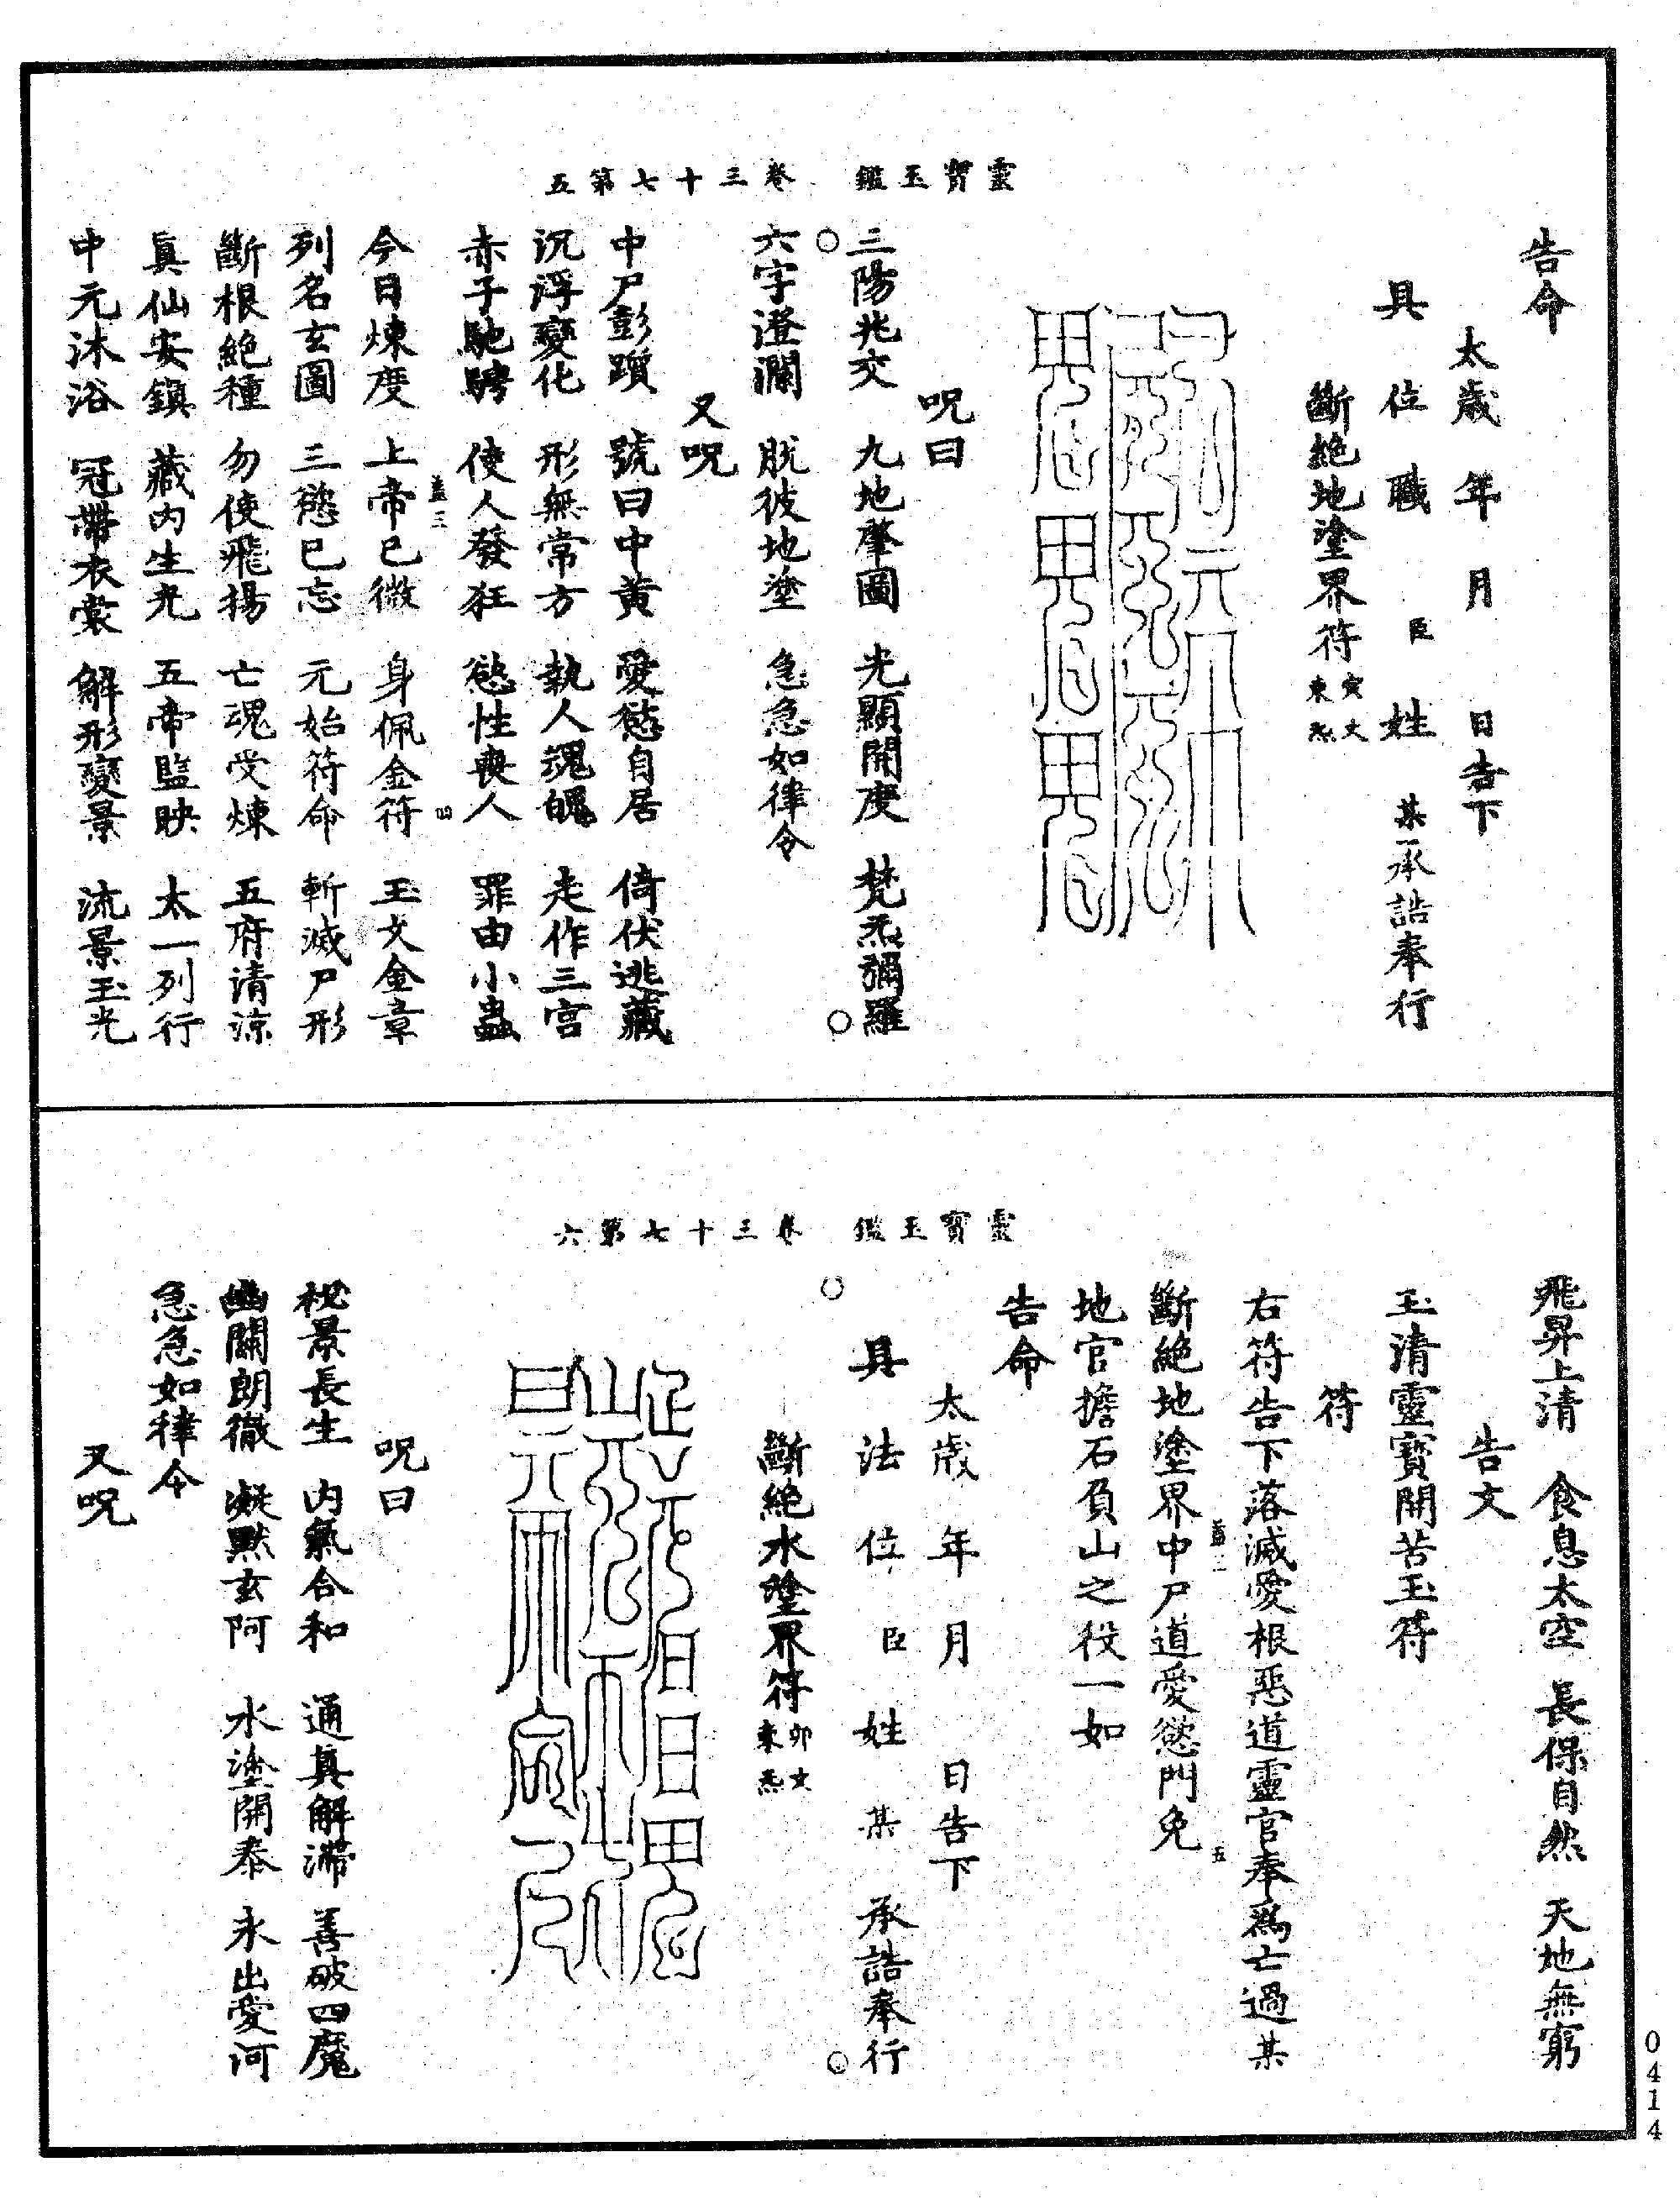 靈寶玉鑑 卷三十七第五
告命
太歲 年 月 日告下
具 位 職 臣 姓 某承誥奉行
斷絕地塗界符寅文東炁
呪曰
三陽兆交 九地肇圖 光顯開度 梵炁彌羅
六字澄瀾 脫彼地塗 急急如律令
又呪
中尸彭躓 號曰中黃 愛慾自居 倚伏逃藏
沉浮變化 形無常方 執人魂魄 走作三宮
赤子馳騁 使人發狂 慾性喪人 罪由小蟲
蓋三 四
今日煉度 上帝已徵 身佩金符 玉文金章
列名玄圖 三慾已忘 元始符命 斬滅尸形
斷根絕種 勿使飛揚 亡魂受煉 五府清涼
真仙安鎮 藏內生光 五帝監映 太一列行
中元沐浴 冠帶衣裳 解形變景 流景玉光
靈寶玉鑑 卷三十七第六
飛昇上清 食息太空 長保自然 天地無窮
告文
玉清靈寶開苦玉符
符
右符告下落滅愛根惡道靈官奉為亡過某
五
斷絕地塗界中尸道愛慾門免
地官擔石負山之役一如
告命
太歲 年 月 日告下
具 法 位 臣 姓 某 承誥奉行
斷絕水塗界符卯文東炁
呪曰
祝景長生 內氣合和 通真解滯 善破四魔
幽關朗徹 凝默玄阿 水塗開泰 永出愛河
急急如律令
又呪
0414